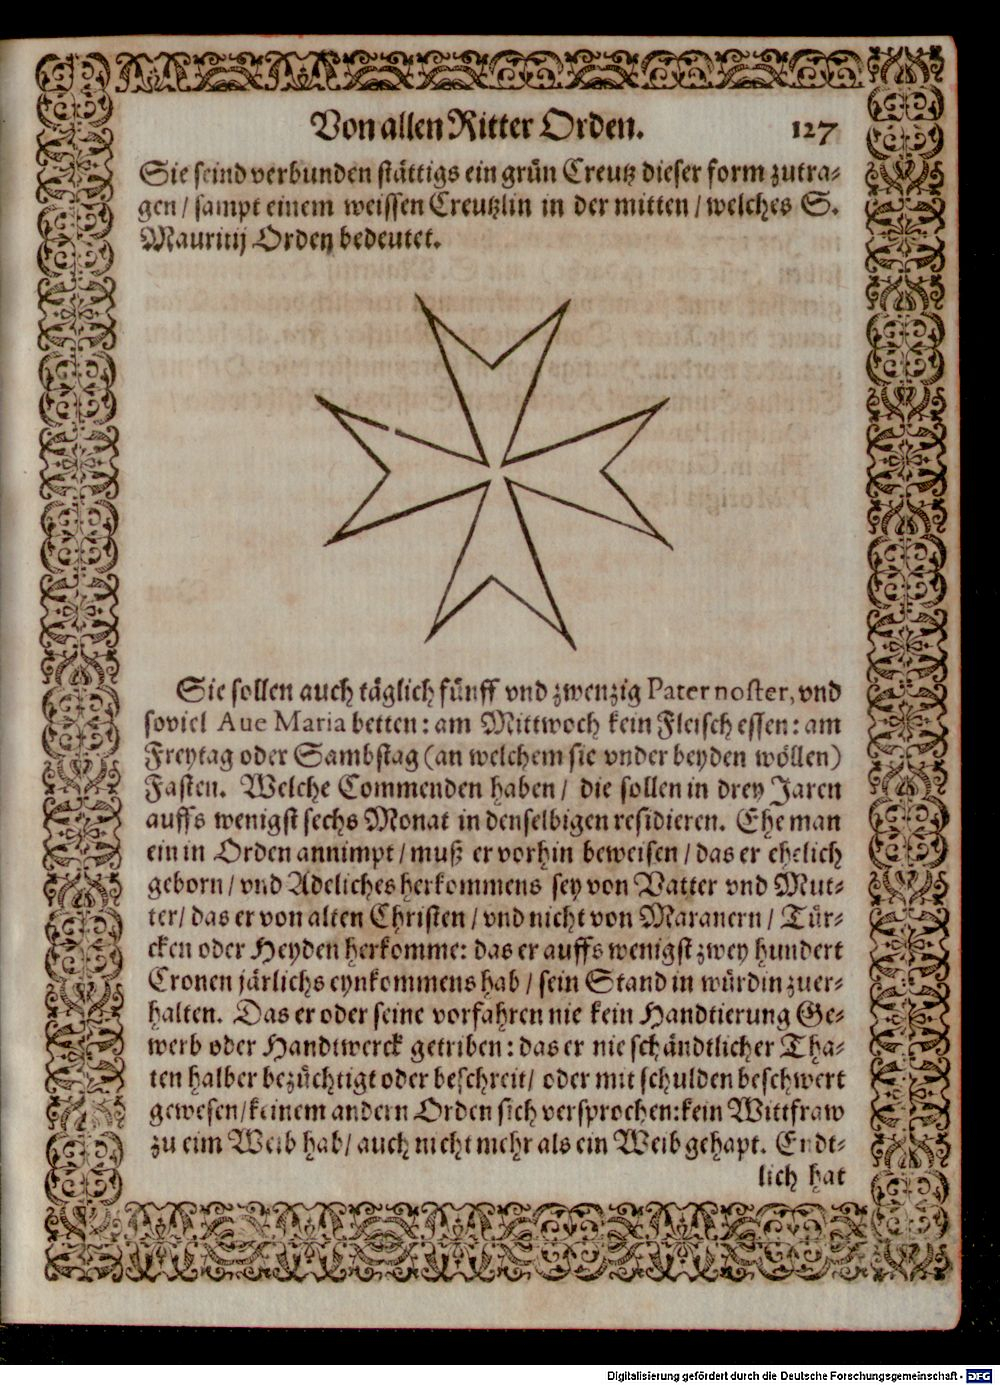 Von allen Ritter Orden. 127
Sie seind verbunden stättigs ein grün Creutz dieser form zutra-
gen / sampt einem weissen Creutzlin in der mitten / welches S.
Mauritij Orden bedeutet.
Sie sollen auch täglich fünff vnd zwenzig Pater noster, vnd
soviel Aue Maria betten: am Mittwoch kein Fleisch essen: am
Freytag oder Sambstag (an welchem sie vnder beyden wöllen)
Fasten. Welche Commenden haben / die sollen in drey Jaren
auffs wenigst sechs Monat in denselbigen residieren. Ehe man
ein in Orden annimpt / muß er vorhin beweisen / das er ehelich
geborn / vnd Adeliches herkommens sey von Vatter vnd Mut-
ter / das er von alten Christen / vnd nicht von Maranern / Tür-
cken oder Heyden herkomme: das er auffs wenigst zwey hundert
Cronen järlichs eynkommens hab / sein Stand in würdin zuer-
halten. Das er oder seine vorfahren nie kein Handtierung Ge-
werb oder Handtwerck getriben: das er nie schändtlicher Tha-
ten halber bezüchtigt oder beschreit / oder mit schulden beschwert
gewesen / keinem andern Orden sich versprochen: kein Wittfraw
zu eim Weib hab / auch nicht mehr als ein Weib gehapt. Endt-
lich hat
Digitalisierung gefördert durch die Deutsche Forschungsgemeinschaft - DFG